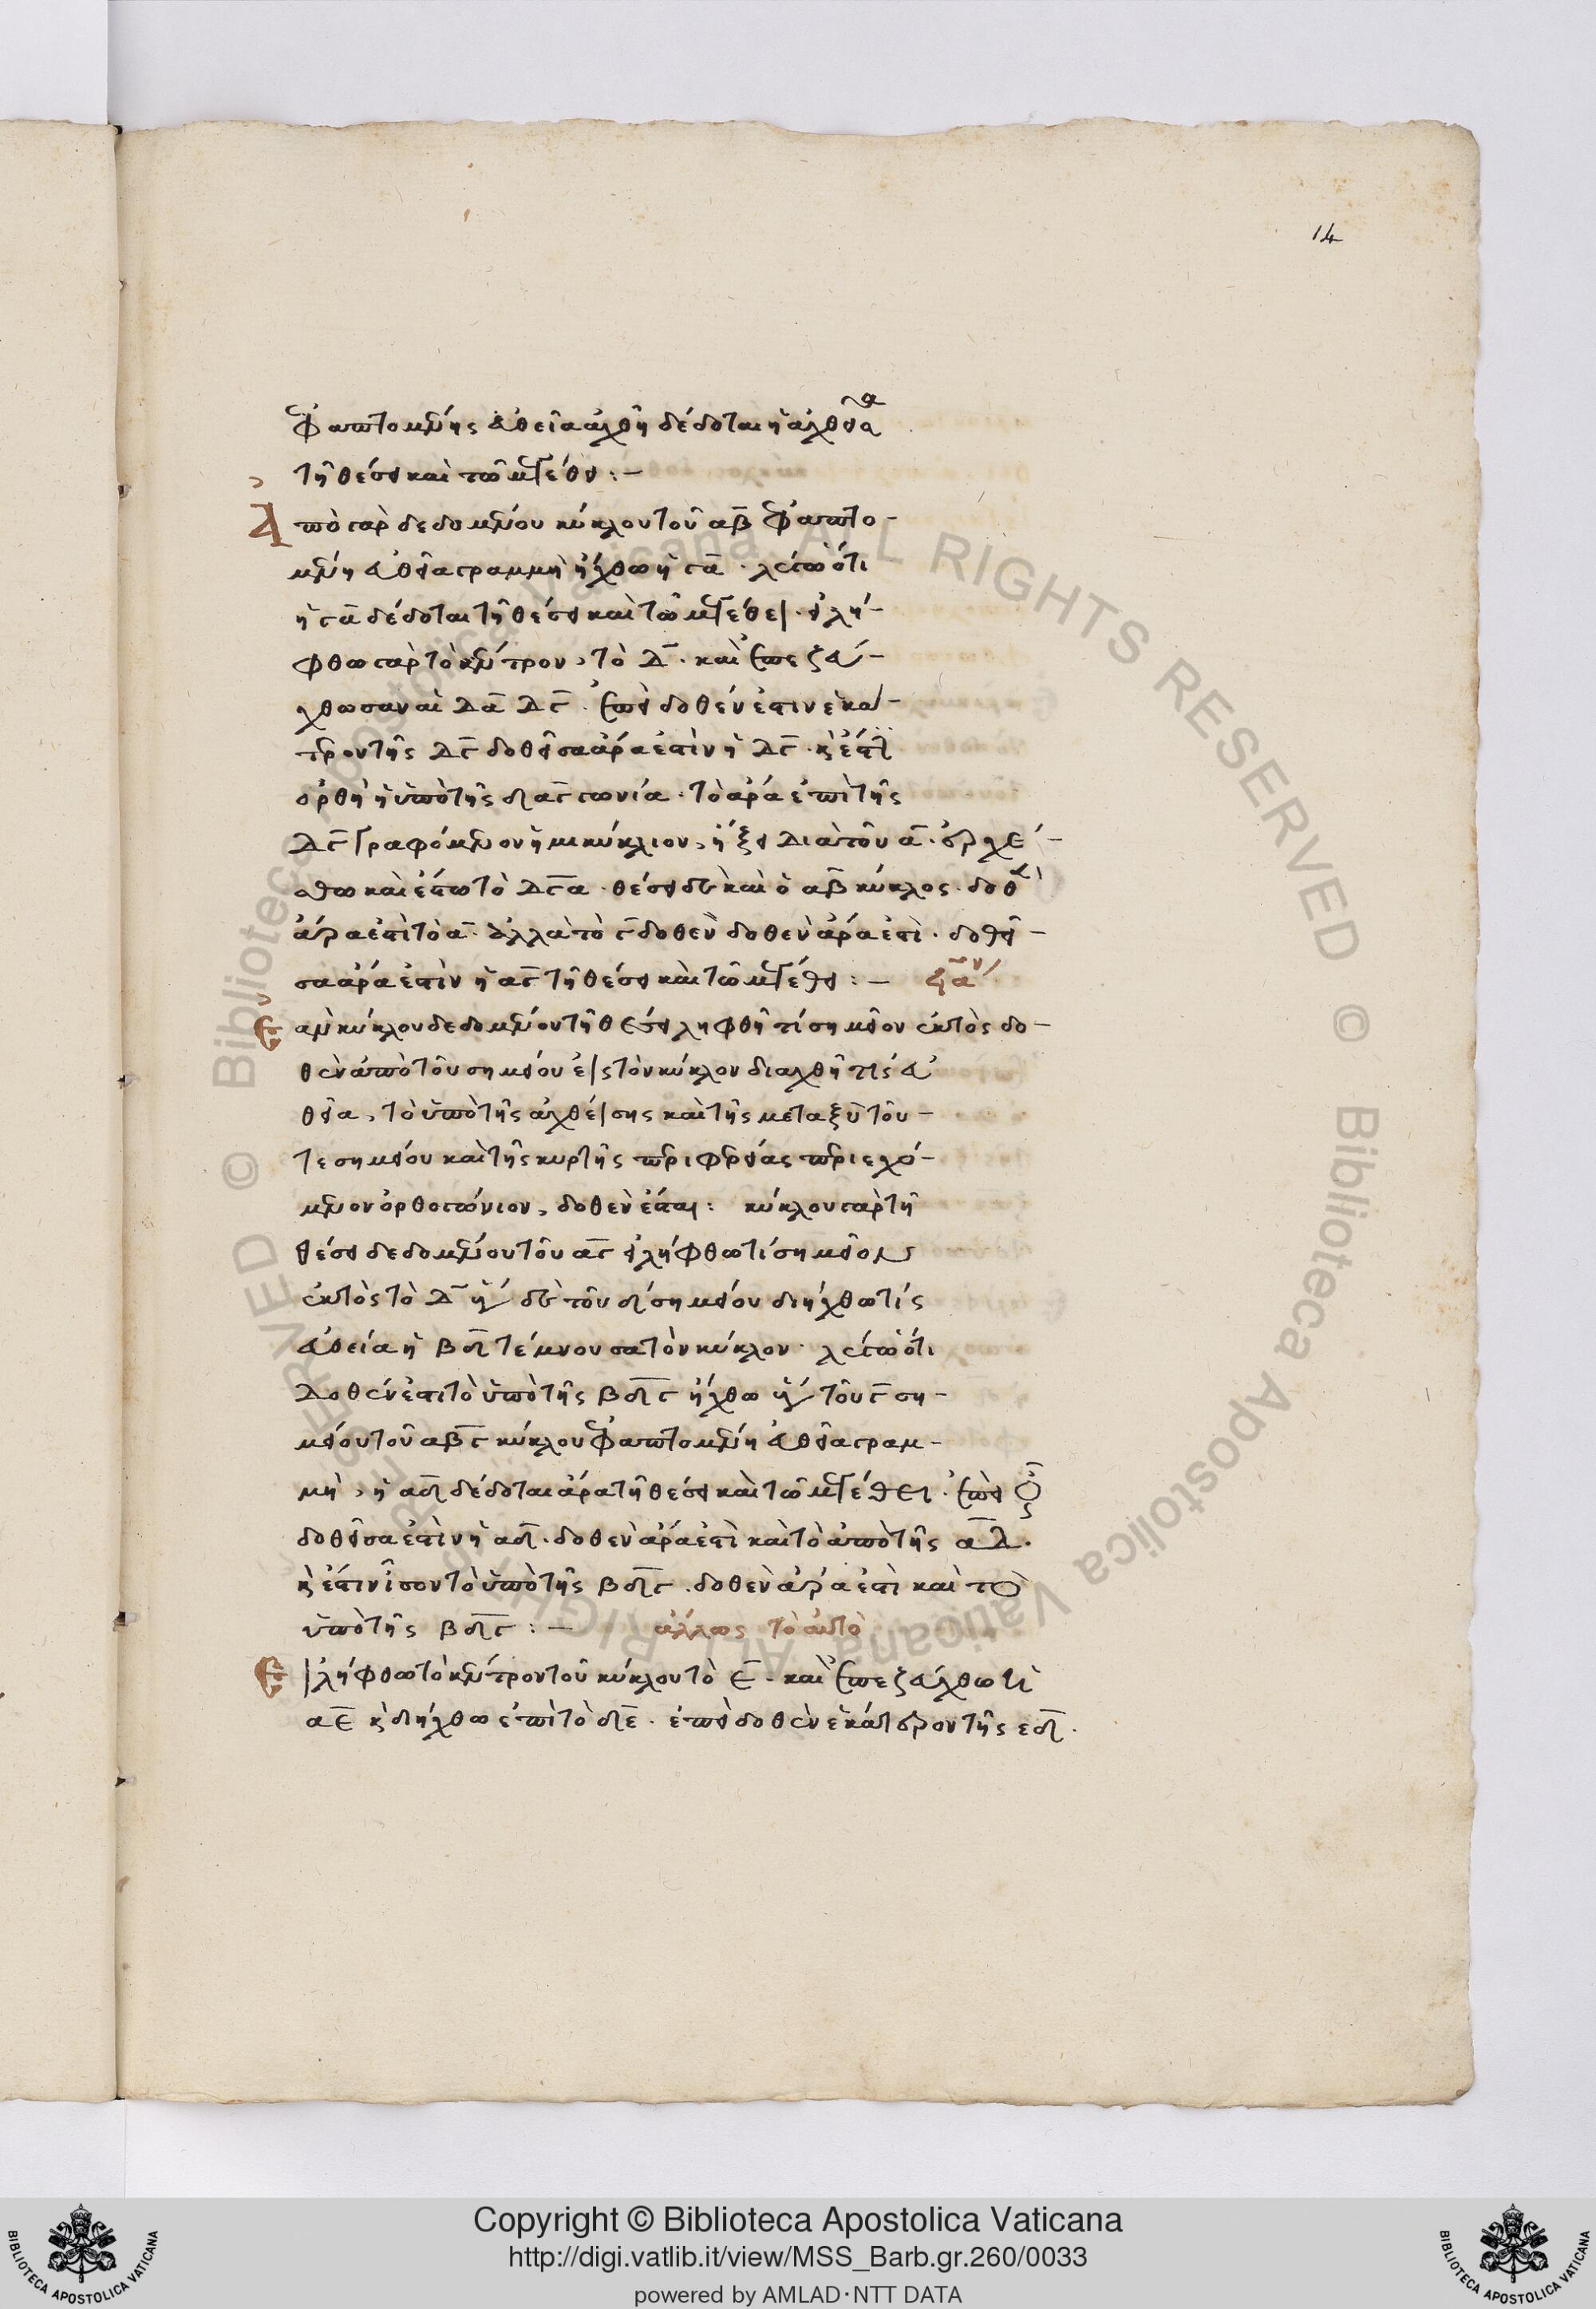 14
ἐφαπτομένης εὐθεῖα ἀχθῇ δέδοται ἡ ἀχθεῖσα
τῇ θέσει καὶ τῶ μεγέθει :-
Ἀπὸ γὰρ δεδομένου κύκλου τοῦ αβ ἐφαπτο-
μένη εὐθεῖα γραμμὴ ἤχθω ἡ γα · λέγω ὅτι
ἡ γα δέδοται τῇ θέσει καὶ τῶ μεγέθει · εἰλή-
φθω γὰρ τὸ κέντρον, τὸ δ · καὶ ἐπεζεύ-
χθωσαν αἱ δα δγ · ἐπεὶ δοθέν ἐστιν ἑκά-
τερον τῆς δγ δοθεῖσα ἄρα ἐστὶν ἡ δγ · κ ἐστι
ὀρθὴ ἡ ὑπὸ τῆς δαγ γωνία · τὸ ἄρα ἐπὶ τῆς
δγ γραφόμενον ἡμικύκλιον, ἥξει διὰ τοῦ α · ἐρχέ-
σθω καὶ ἔστω τὸ δγα · θέσει δὲ καὶ ὁ αβ κύκλος · δοθὲν
ἄρα ἐστὶ τὸ α · ἀλλὰ τὸ γ δοθὲν δοθὲν ἄρα ἐστὶ · δοθεῖ-
σα ἄρα ἐστὶν ἡ αγ τῇ θέσει καὶ τῶ μεγέθει :-
Ἐὰν κύκλου δεδομένου τῇ θέσει ληφθῇ τί σημεῖον ἐκτὸς δο-
θὲν ἀπὸ τοῦ σημείου εἰς τὸν κύκλον διαχθῇ τίς εὐ-
θεῖα, τὸ ὑπὸ τῆς ἀχθείσης καὶ τῆς μεταξὺ τοῦ
τε σημείου καὶ τῆς κυρτῆς περιφερείας περιεχό-
μενον ὀρθογώνιον, δοθὲν ἔσται : κύκλου γὰρ τῇ
θέσει δεδομένου τοῦ αγ εἰλήφθω τί σημεῖον
ἐκτὸς τὸ δ ἀπὸ δὲ τοῦ δ σημείου διήχθω τίς
εὐθεία ἡ βδ τέμνουσα τὸν κύκλον · λέγω ὅτι
δοθέν ἐστι τὸ ὑπὸ τῆς βδγ ἤχθω ἀπὸ τοῦ γ ση-
μείου τοῦ αβγ κύκλου ἐφαπτομένη εὐθεῖα γραμ-
μὴ, ἡ αδ δέδοται ἄρα τῇ θέσει καὶ τῶ μεγέθει · ἐπεὶ οὖν
δοθεῖσα ἐστὶν ἡ αδ · δοθὲν ἄρα ἐστὶ καὶ τὸ ἀπὸ τῆς αδ ·
κ ἔστιν ἴσον τὸ ὑπὸ τῆς βδγ · δοθὲν ἄρα ἐστὶ καὶ τὸ
ὑπὸ τῆς βδγ :- ἄλλως τὸ αὐτὸ
Εἰλήφθω τὸ κέντρον τοῦ κύκλου τὸ ε · καὶ ἐπεζεύχθω τὶ
αε κ διήχθω ἐπὶ τὸ δε · ἐπεὶ δοθὲν ἑκάτερον τῆς εδ ·
Copyright © Biblioteca Apostolica Vaticana
http://digi.vatlib.it/view/MSS_Barb.gr.260/0033
powered by AMLAD·NTT DATA
BIBLIOTECA APOSTOLICA VATICANA
BIBLIOTECA APOSTOLICA VATICANA